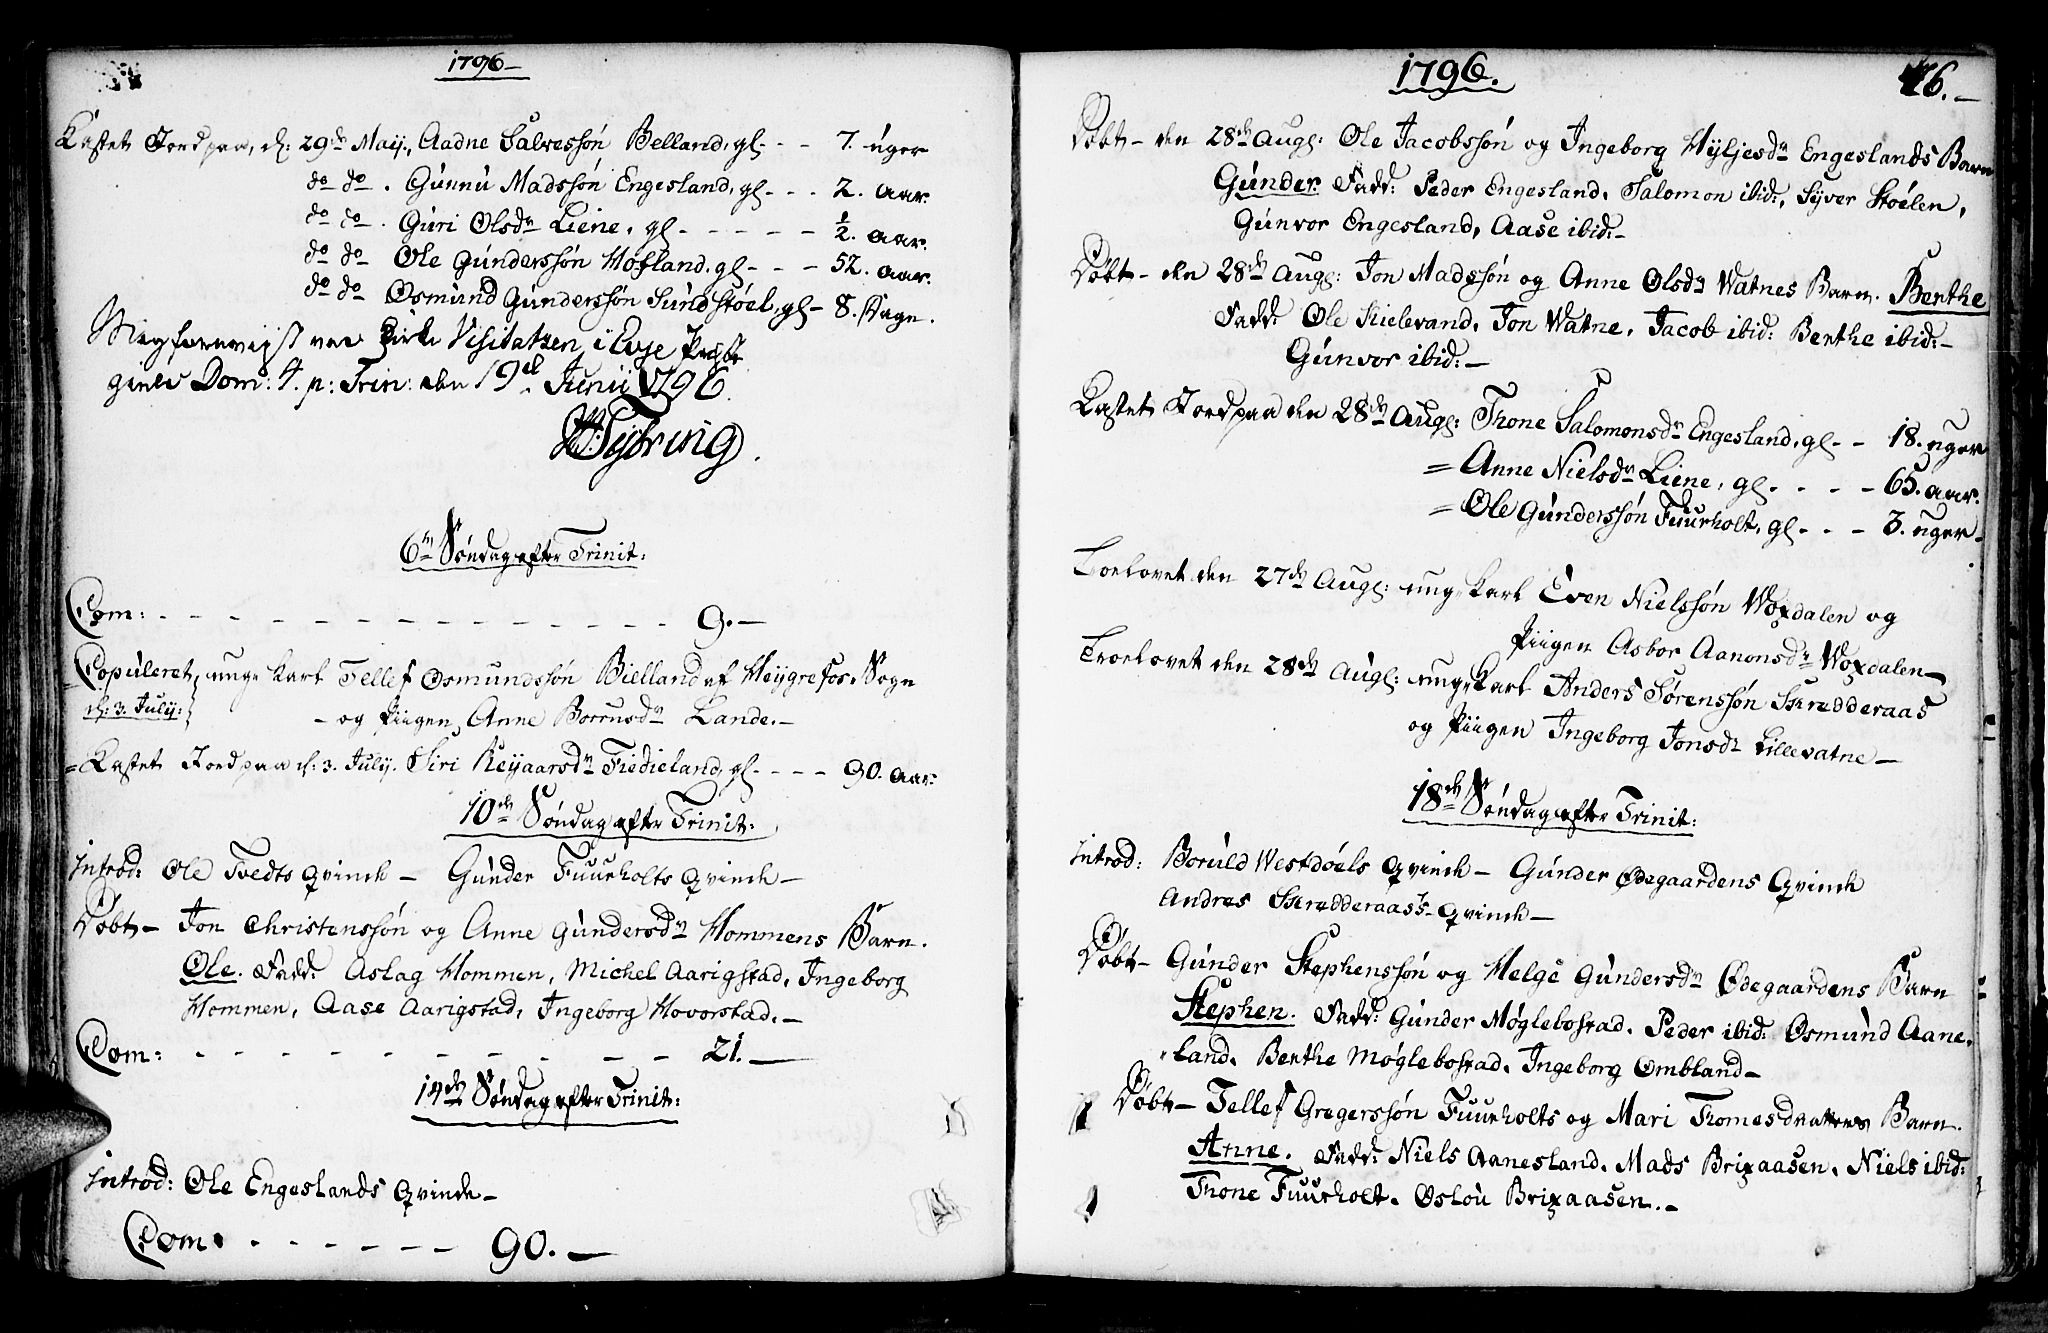 1796 –
Kastet Jord paa, d: 29de Maij, Aadne Salvessøn Belland, gl - - - 7. uger
do do . Gunnu Madssøn Engesland, gl - - - 2. aar.
do do . Guri Olsdr Liene, gl - - - - - ½. aar.
do do Ole Gunderssøn Høfland, gl - - - 52. aar.
do do Osmund Gunderssøn Sundstøel, gl - 8. Dage.
Mig foreviist ved Kirke Visitatzen i Evje Præste
gield Dom: 4. p: Trin: den 19de Junii 1796.
Sÿbring.
6te Søndag efter Trinit:
Com: - - - - - - - - - - - - - - - 9. –
Copuleret, unge Karl Tellef Osmundssøn Bielland af Heygrefos Sogn
d: 3. July: – og Piigen Anne Borrusdr Lande. –
= Kastet Jord paa d: 3. July. Siri Reyaarsdr Fredieland, gl - - - - 90. aar.
10de Søndag efter Trinit:
Introd: Ole Tvedts Qvinde – Gunder Fuurholts Qvinde –
Døbt – Jon Christenssøn og Anne Gundersdr Hommens Barn.
Ole. Fadd: Aslag Hommen, Michel Aarigstad, Ingeborg
Hommen, Aase Aarigstad, Ingeborg Hovorstad. –
Com: - - - - - - - - - 21. –
14de Søndag efter Trinit:
Introd: Ole Engeslands Qvinde –
Com: - - - - - - 90. –
1796. 76. –
Døbt – den 28de Aug: Ole Jacobssøn og Ingeborg Hyljesdr Engeslands Barn
Gunder Fadd: Peder Engesland, Salomon ibid:, Syver Støelen,
Gunvor Engesland, Aase ibid: –
Døbt – den 28de Aug: Jon Madssøn og Anne Olsdr Watnes Barn. Berthe
Fadd: Ole Kielevand, Jon Watne, Jacob ibid: Berthe ibid: –
Gunvor ibid: –
Kastet Jord paa den 28de Aug: Thone Salomonsdr Engesland, gl - - 18. uger
= Anne Nielsdr Liene, gl - - - - 65. aar.
= Ole Gunderssøn Fuurholt, gl - - - 3. uger –
Troelovet den 27de Aug: unge Karl Even Nielssøn Woxdalen og
Piigen Asbor Aanonsdr Woxdalen –
Troelovet den 28de Aug: unge Karl Anders Sørenssøn Skredderaas
og Piigen Ingeborg Jonsdr Lillevatne –
18de Søndag efter Trinit:
Introd: Boruld Westdøels Qvinde – Gunder Ødegaardens Qvinde
Andres Skredderaas's Qvinde –
Døbt – Gunder Stephenssøn og Helge Gundersdr Ødegaardens Barn
Stephen. Fadd: Gunder Møglebostad, Peder ibid: Osmund Aane-
land, Berthe Møglebostad, Ingeborg Ombland –
Døbt – Tellef Gregerssøn Fuurholts og Mari Thomesdatters Barn.
Anne. Fadd: Niels Aanesland, Mads Brixaasen, Niels ibid:
Thone Fuurholt, Oslou Brixaasen. –